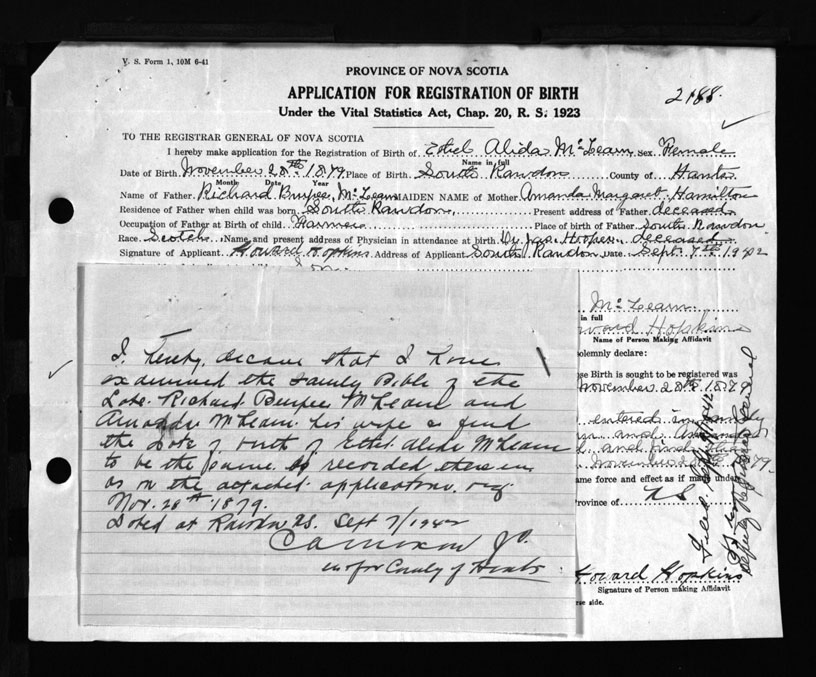 V. S. Form 1, 10M 6-41
PROVINCE OF NOVA SCOTIA
APPLICATION FOR REGISTRATION OF BIRTH
2188.
Under the Vital Statistics Act, Chap. 20, R. S. 1923
TO THE REGISTRAR GENERAL OF NOVA SCOTIA
I hereby make application for the Registration of Birth of Ethel Alida McLearn Sex Female
Name in full
Date of Birth November 28th 1879 Place of Birth South Rawdon County of Hants
Month Date Year
Name of Father Richard Burpee McLearn MAIDEN NAME of Mother Amanda Margaret Hamilton
Residence of Father when child was born South Rawdon, Present address of Father deceased
Occupation of Father at Birth of child Farmer Place of birth of Father South Rawdon
Race Scotch Name and present address of Physician in attendance at birth Dr. Jas. Hooper deceased
Signature of Applicant Howard Hopkins Address of Applicant South Rawdon Date Sept. 7th 1942
Son
McLearn
in full
Howard Hopkins
Name of Person Making Affidavit
solemnly declare:
se Birth is sought to be registered was
November 28th 1879
entered in
and
and
November 1879.
me force and effect as if made under
rovince of N S
Howard Hopkins
Signature of Person making Affidavit
rse side.
I hereby declare that I have
examined the Family Bible of the
Late Richard Burpee McLearn and
Amanda McLearn his wife & find
the date of birth of Ethel Alida McLearn
to be the same as recorded therein
as on the attached application viz
Nov. 28th 1879.
Dated at Rawdon NS. Sept 7/1942
J.P.
in & for County of Hants
Filed Sept 1942
Deputy Registrar General